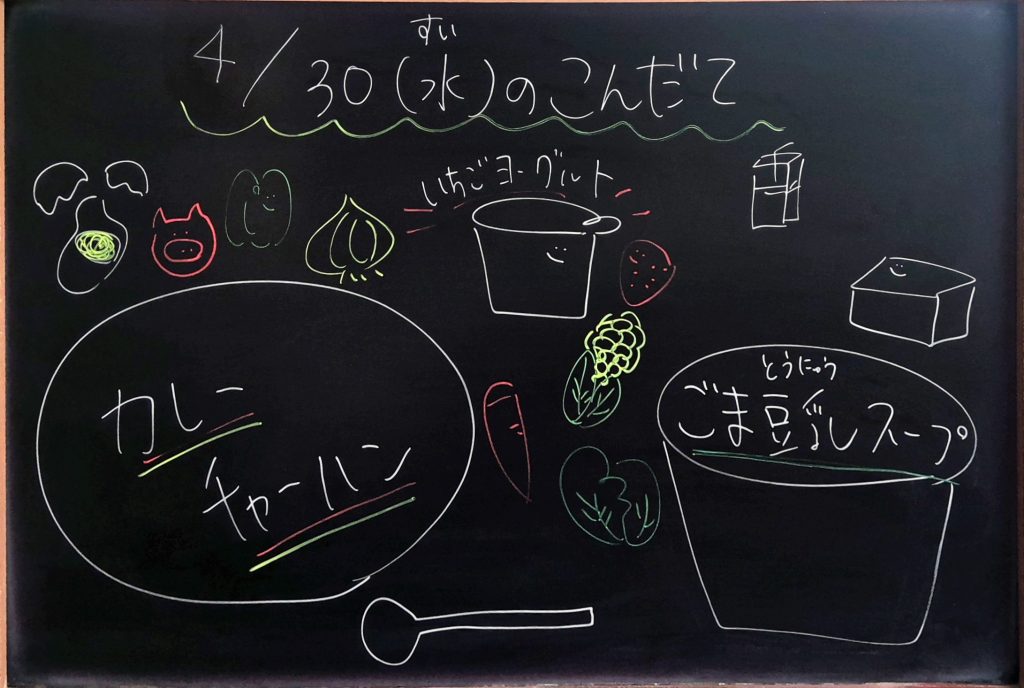 すい
4/30(水)のこんだて
いちごヨーグルト
カレー
チャーハン
とうにゅう
ごま豆乳スープ